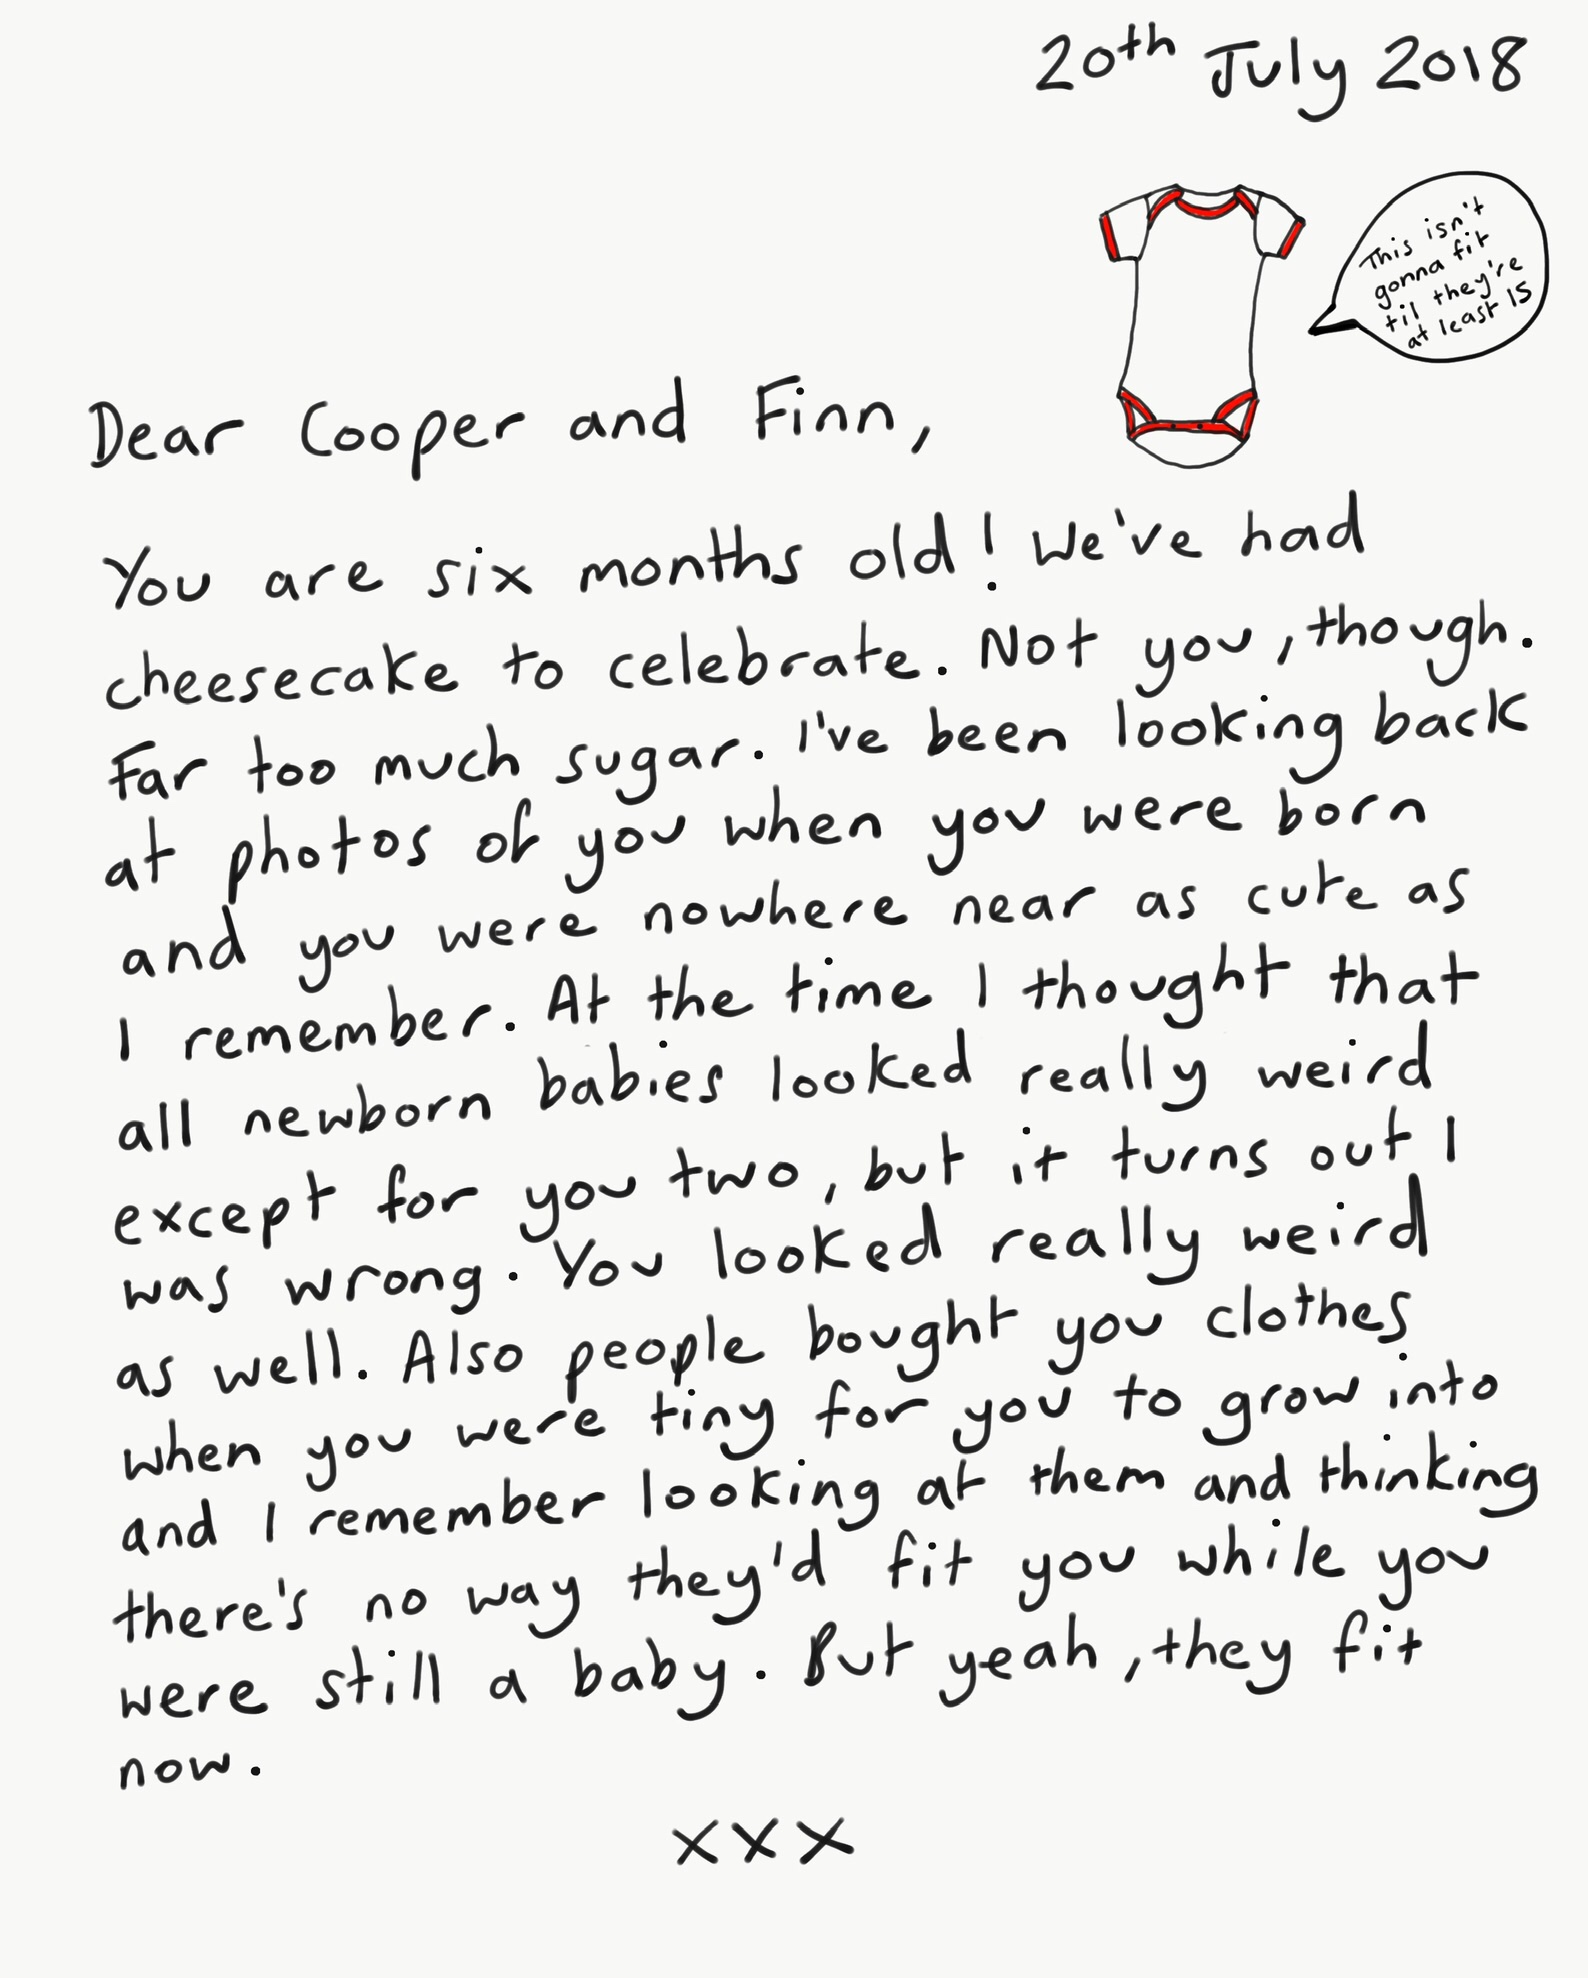 20th July 2018
This isn't
gonna fit
til they're
at least 15
Dear Cooper and Finn,
You are six months old! We've had
cheesecake to celebrate. Not you, though.
Far too much sugar. I've been looking back
at photos of you when you were born
and you were nowhere near as cute as
I remember. At the time I thought that
all newborn babies looked really weird
except for you two, but it turns out I
was wrong. You looked really weird
as well. Also people bought you clothes
when you were tiny for you to grow into
and I remember looking at them and thinking
there's no way they'd fit you while you
were still a baby. But yeah, they fit
now.
xxx